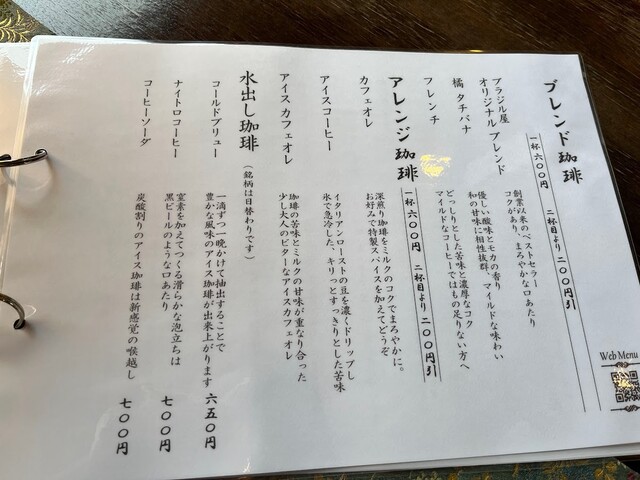 ブレンド珈琲
一杯六〇〇円 二杯目より二〇〇円引
ブラジル屋
オリジナルブレンド
創業以来のベストセラー
コクがあり、まろやかな口あたり
橘 タチバナ
優しい酸味とモカの香り
和の甘味に相性抜群、マイルドな味わい
フレンチ
どっしりとした苦味と濃厚なコク
マイルドなコーヒーではもの足りない方へ
アレンジ珈琲
一杯六〇〇円 二杯目より二〇〇円引
カフェオレ
深煎り珈琲をミルクのコクでまろやかに。
お好みで特製スパイスを加えてどうぞ
アイスコーヒー
イタリアンローストの豆を濃くドリップし
氷で急冷した、キリっとすっきりとした苦味
アイスカフェオレ
珈琲の苦味とミルクの甘味が重なり合った
少し大人のビターなアイスカフェオレ
水出し珈琲
(銘柄は日替わりです)
コールドブリュー
一滴ずつ一晩かけて抽出することで
豊かな風味のアイス珈琲が出来上がります
六五〇円
ナイトロコーヒー
窒素を加えてつくる滑らかな泡立ちは
黒ビールのような口あたり
七〇〇円
コーヒーソーダ
炭酸割りのアイス珈琲は新感覚の喉越し
七〇〇円
Web Menu